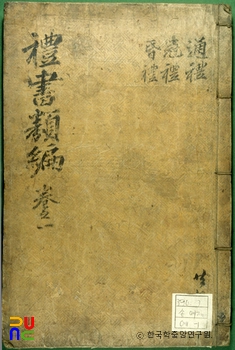 禮書類編 卷之一
通禮
冠禮
昏禮
共
PUNC
© 한국학중앙연구원